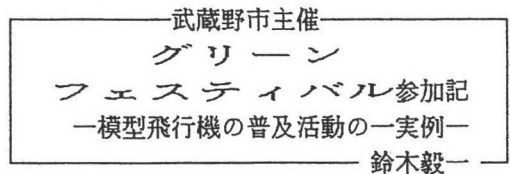 武蔵野市主催
グリーン
フェスティバル参加記
―模型飛行機の普及活動の一実例―
鈴木毅一